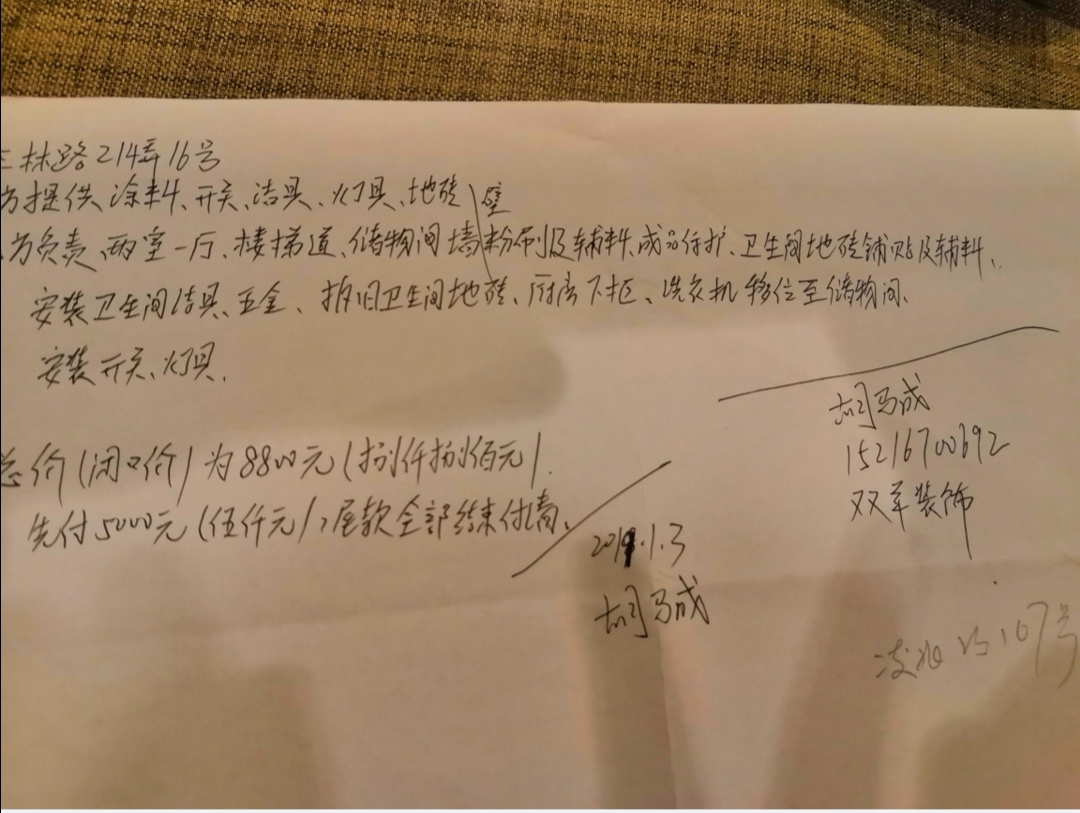 三林路214弄16号
方提供涂料、开关、洁具、灯具、地砖
壁
方负责、两室一厅、楼梯道、储物间墙粉刷及辅料、成品保护、卫生间地砖铺贴及辅料、
安装卫生间洁具、五金、拆旧卫生间地砖、厨房下柜、洗衣机移位至储物间、
安装开关、灯具、
总价(闭口价)为8800元(捌仟捌佰元).
先付5000元(伍仟元),尾款全部结束付清、
2019.1.3
胡马成
胡马成
15216700692
双军装饰
167号